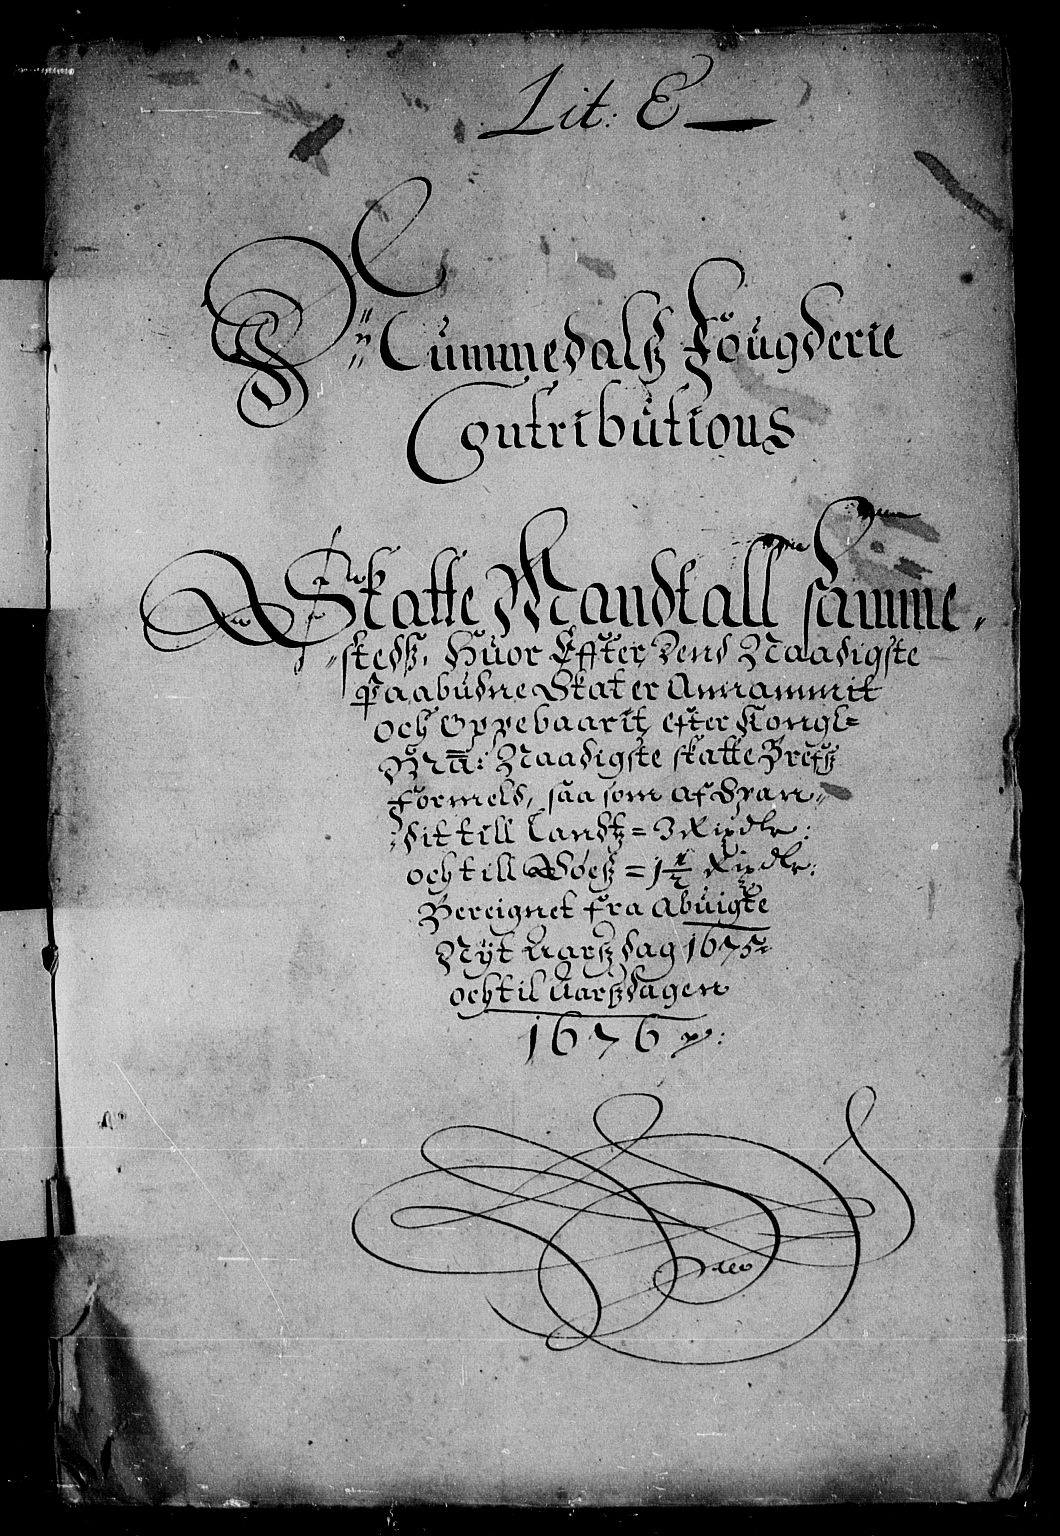 Lit: E
Nummedalß Fougderie
Contributions
Skatte Mandtall samme-
stedß, Huor Effter dend Naadigste
Paabudne Skat er Annammit
och Oppebaarit, efter Kongl=
Maÿ: Naadigste skatte Brefß
formeld, saa som af
dit till Landß = 3 Rixdlr:
och till = 1½ Rixdlr:
Bereignet fra Abuigte
Nÿt Aarß dag 1675=
och til Aarßdagen
1676